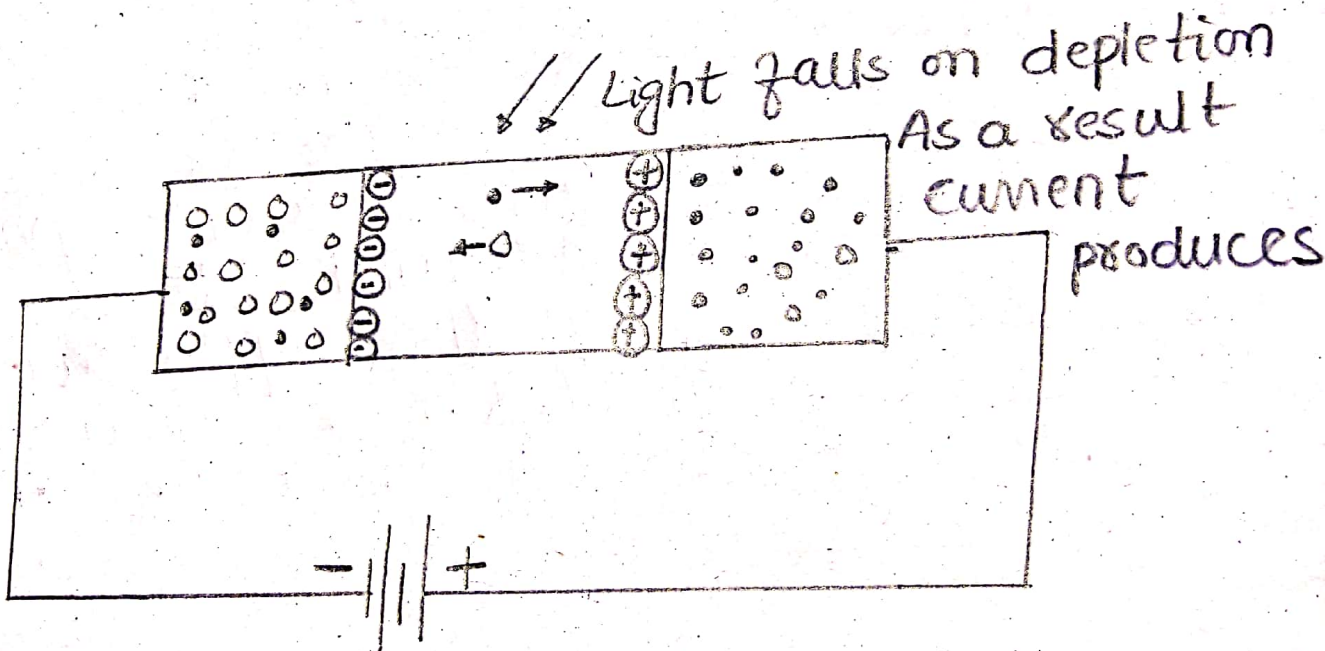 Light falls on depletion
As a result
current
produces
- +